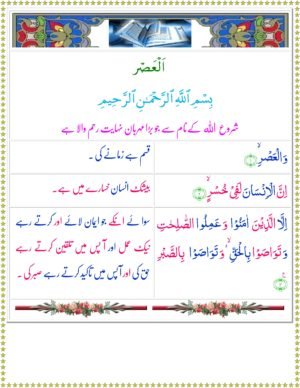 اَلْعَصْر
بِسْمِ اللّٰهِ الرَّحْمٰنِ الرَّحِيْمِ
شروع اللہ کے نام سے جو بڑا مہربان نہایت رحم والا ہے
وَالْعَصْرِ ۙ ﴿۱﴾ قسم ہے زمانے کی ۔
اِنَّ الْاِنْسَانَ لَفِيْ خُسْرٍ ۙ ﴿۲﴾ بیشک انسان خسارے میں ہے ۔
اِلَّا الَّذِيْنَ اٰمَنُوْا وَعَمِلُوا الصّٰلِحٰتِ سوائے انکے جو ایمان لائے اور کرتے رہے
وَتَوَاصَوْا بِالْحَقِّ ۙ وَتَوَاصَوْا بِالصَّبْرِ نیک عمل اور آپس میں تلقین کرتے رہے
﴿۳﴾ حق کی اور آپس میں تاکید کرتے رہے صبر کی ۔